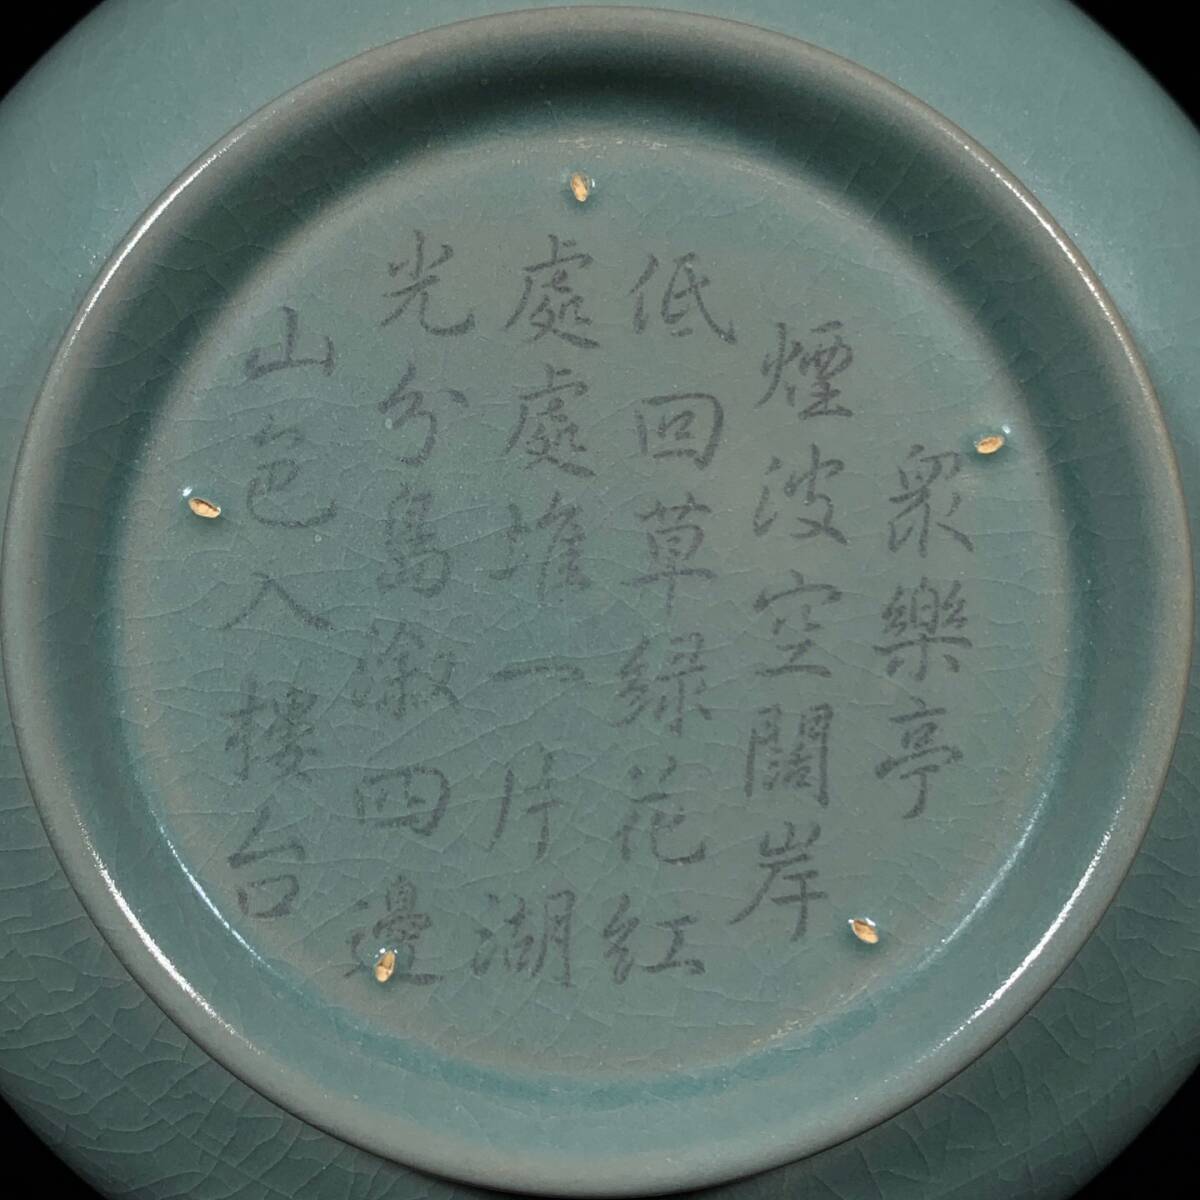 衆樂亭
煙波空闊岸
低回草緑花紅
處處堆一片湖
光分島潋四邊
山色入樓台